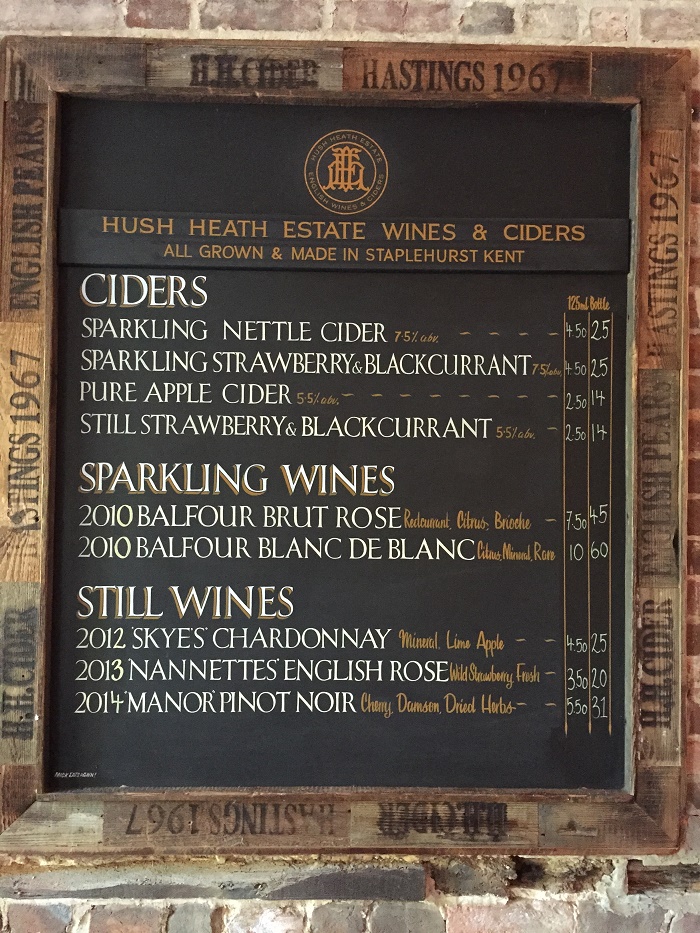 H.H.CIDER HASTINGS 1967
ENGLISH PEARS
HASTINGS 1967
H.H.CIDER
HUSH HEATH ESTATE
ENGLISH WINES & CIDERS
HUSH HEATH ESTATE WINES & CIDERS
ALL GROWN & MADE IN STAPLEHURST KENT
CIDERS 125ml Bottle
SPARKLING NETTLE CIDER 7·5% abv. 4·50 25
SPARKLING STRAWBERRY & BLACKCURRANT 7·5% abv. 4·50 25
PURE APPLE CIDER 5·5% abv. 2·50 14
STILL STRAWBERRY & BLACKCURRANT 5·5% abv. 2·50 14
SPARKLING WINES
2010 BALFOUR BRUT ROSE Redcurrant, Citrus, Brioche 7·50 45
2010 BALFOUR BLANC DE BLANC Citrus, Mineral, Rare 10 60
STILL WINES
2012 'SKYES' CHARDONNAY Mineral, Lime, Apple 4·50 25
2013 'NANNETTES' ENGLISH ROSE Wild Strawberry, Fresh 3·50 20
2014 'MANOR' PINOT NOIR Cherry, Damson, Dried Herbs 5·50 31
HASTINGS 1967
ENGLISH PEARS
H.H.CIDER
HASTINGS 1967 H.H.CIDER